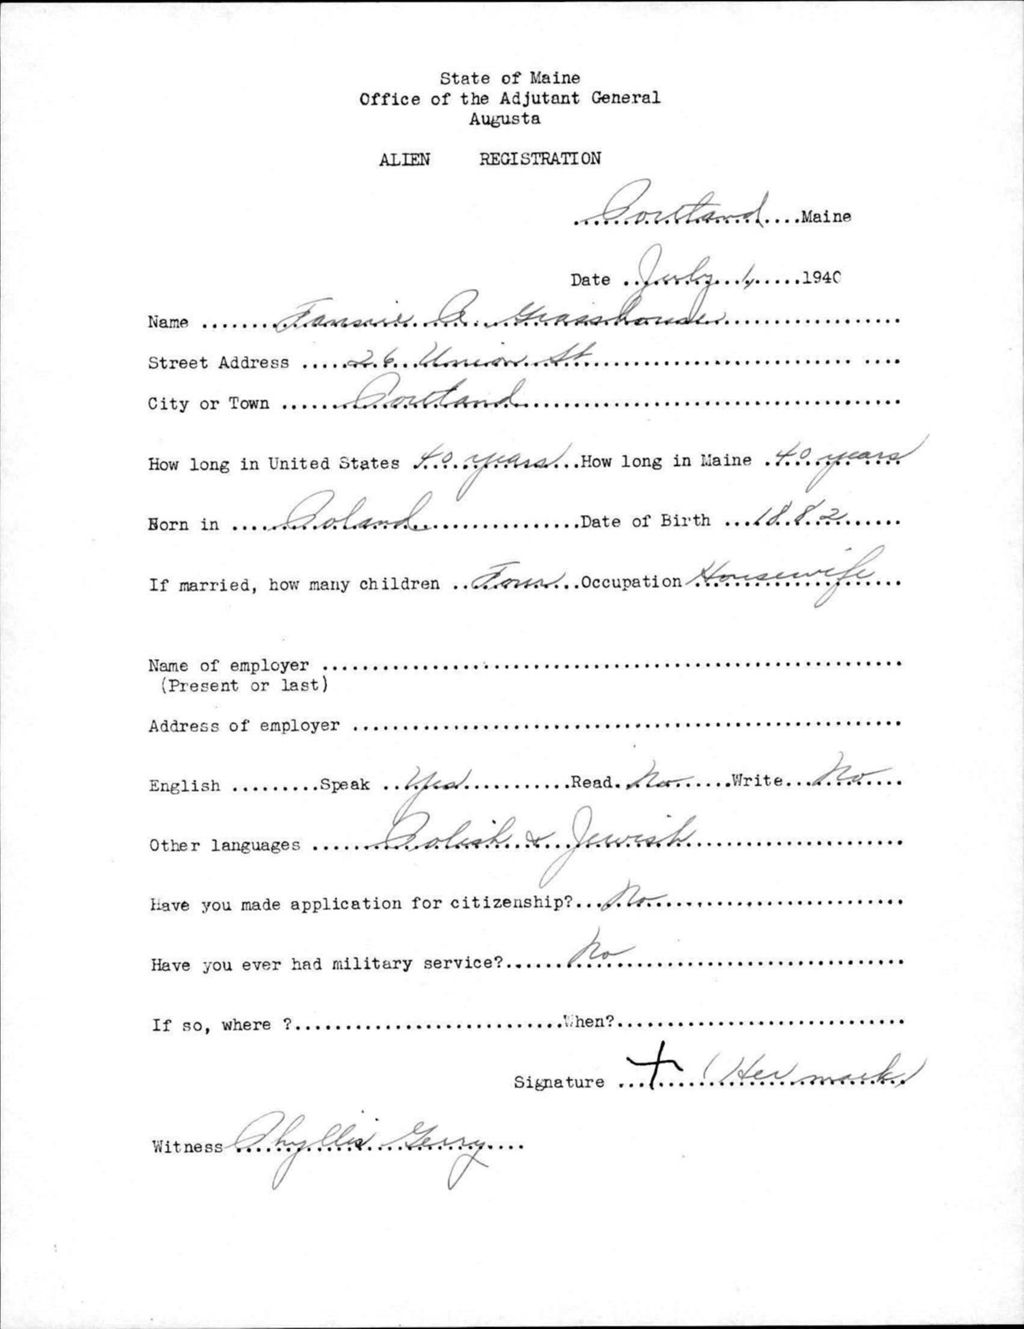 State of Maine
Office of the Adjutant General
Augusta
ALIEN REGISTRATION
Portland....Maine
Date ..July 1,.....1940
Name .......Fannie A. Grasshouse..................
Street Address .....26 Union St..................... ....
City or Town ......Portland......................................
How long in United States .40 years...How long in Maine .40 years
Born in .....Poland..................Date of Birth ...1882......
If married, how many children ..Four...Occupation Housewife...
Name of employer ..........................................................
(Present or last)
Address of employer .......................................................
English .........Speak ..Yes...........Read.No......Write...No....
Other languages ......Polish & Jewish......................
Have you made application for citizenship?...No.........................
Have you ever had military service?......No..............................
If so, where ?...........................When?.............................
Signature ...+.....(Her mark)
Witness Phyllis Gerry....